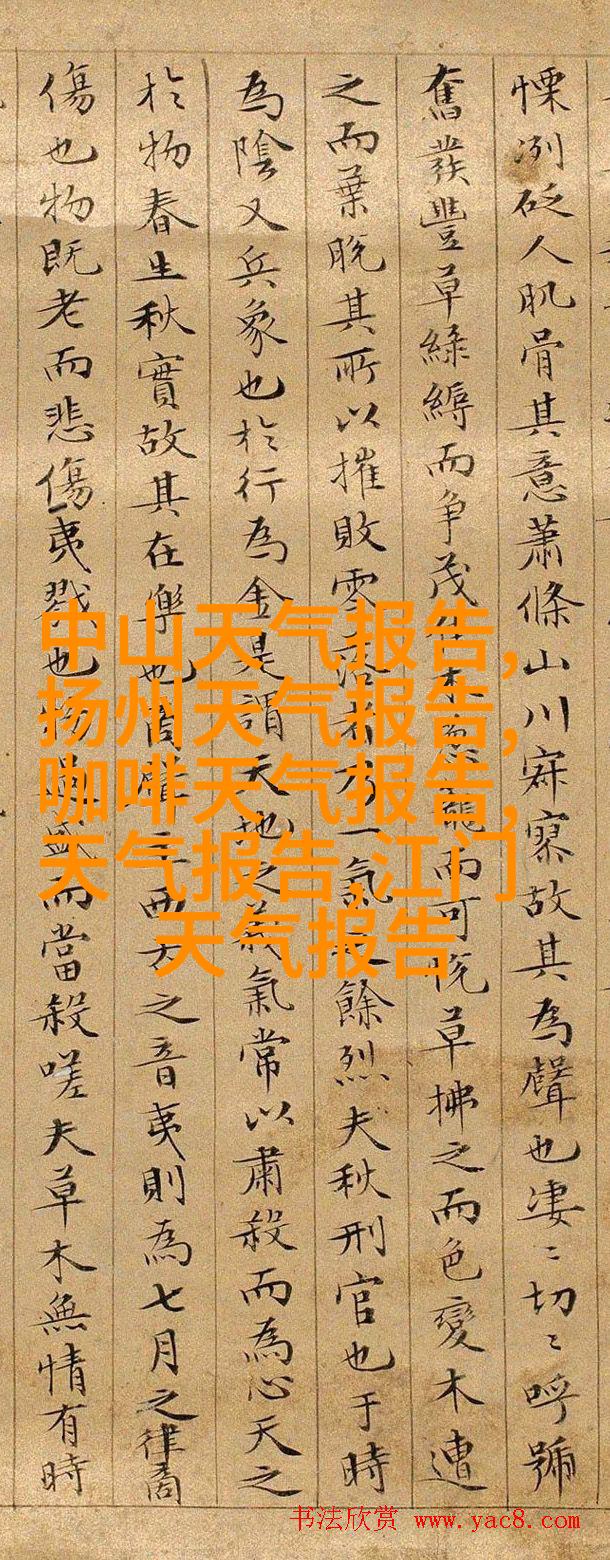 慄冽砭人肌骨其意蕭條山川寂寥故其為聲也凄〻切〻呼號
奮發豐草綠縟而争茂佳木葱蘢而可悅草拂之而色變木遭
之而葉脫其所以摧敗零落者乃一氣之餘烈夫秋刑官也于時
為陰又兵象也於行為金是謂天地之義氣常以肅殺而為心天之
於物春生秋實故其在樂也商聲主西方之音夷則為七月之律商
傷也物既老而悲傷夷戮也物過盛而當殺嗟夫草木無情有時
中山天气报告,
扬州天气报告,
咖啡天气报告,
天气报告,江门
天气报告
书法欣赏 www.yac8.com